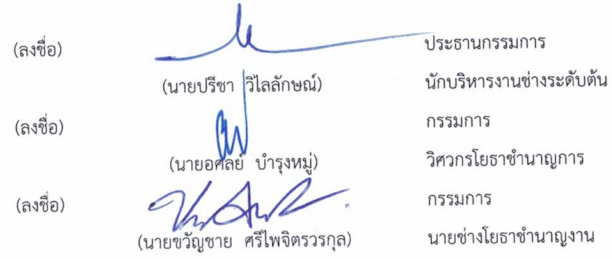 (ลงชื่อ) ประธานกรรมการ
(นายปรีชา วิไลลักษณ์) นักบริหารงานช่างระดับต้น
(ลงชื่อ) กรรมการ
(นายอศัลย์ บำรุงหมู่) วิศวกรโยธาชำนาญการ
(ลงชื่อ) กรรมการ
(นายขวัญชาย ศรีไพจิตรวรกุล) นายช่างโยธาชำนาญงาน